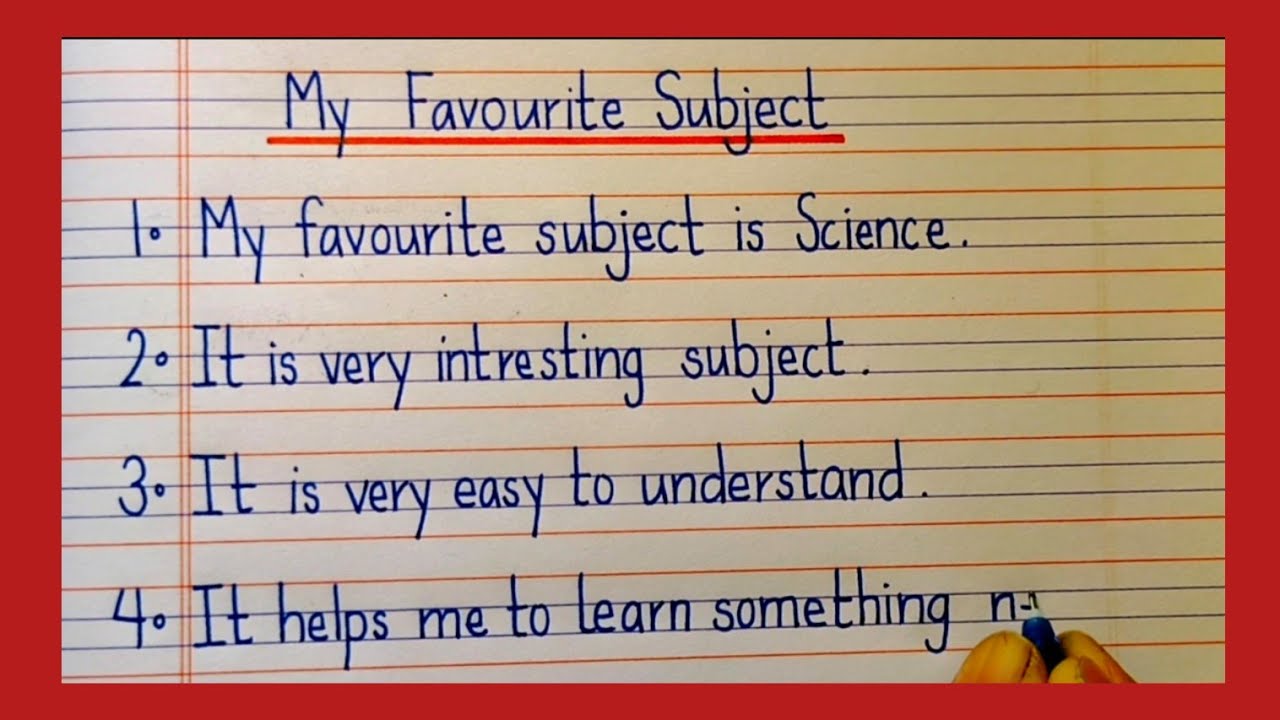 My Favourite Subject
1. My favourite subject is Science.
2. It is very intresting subject.
3. It is very easy to understand.
4. It helps me to learn something